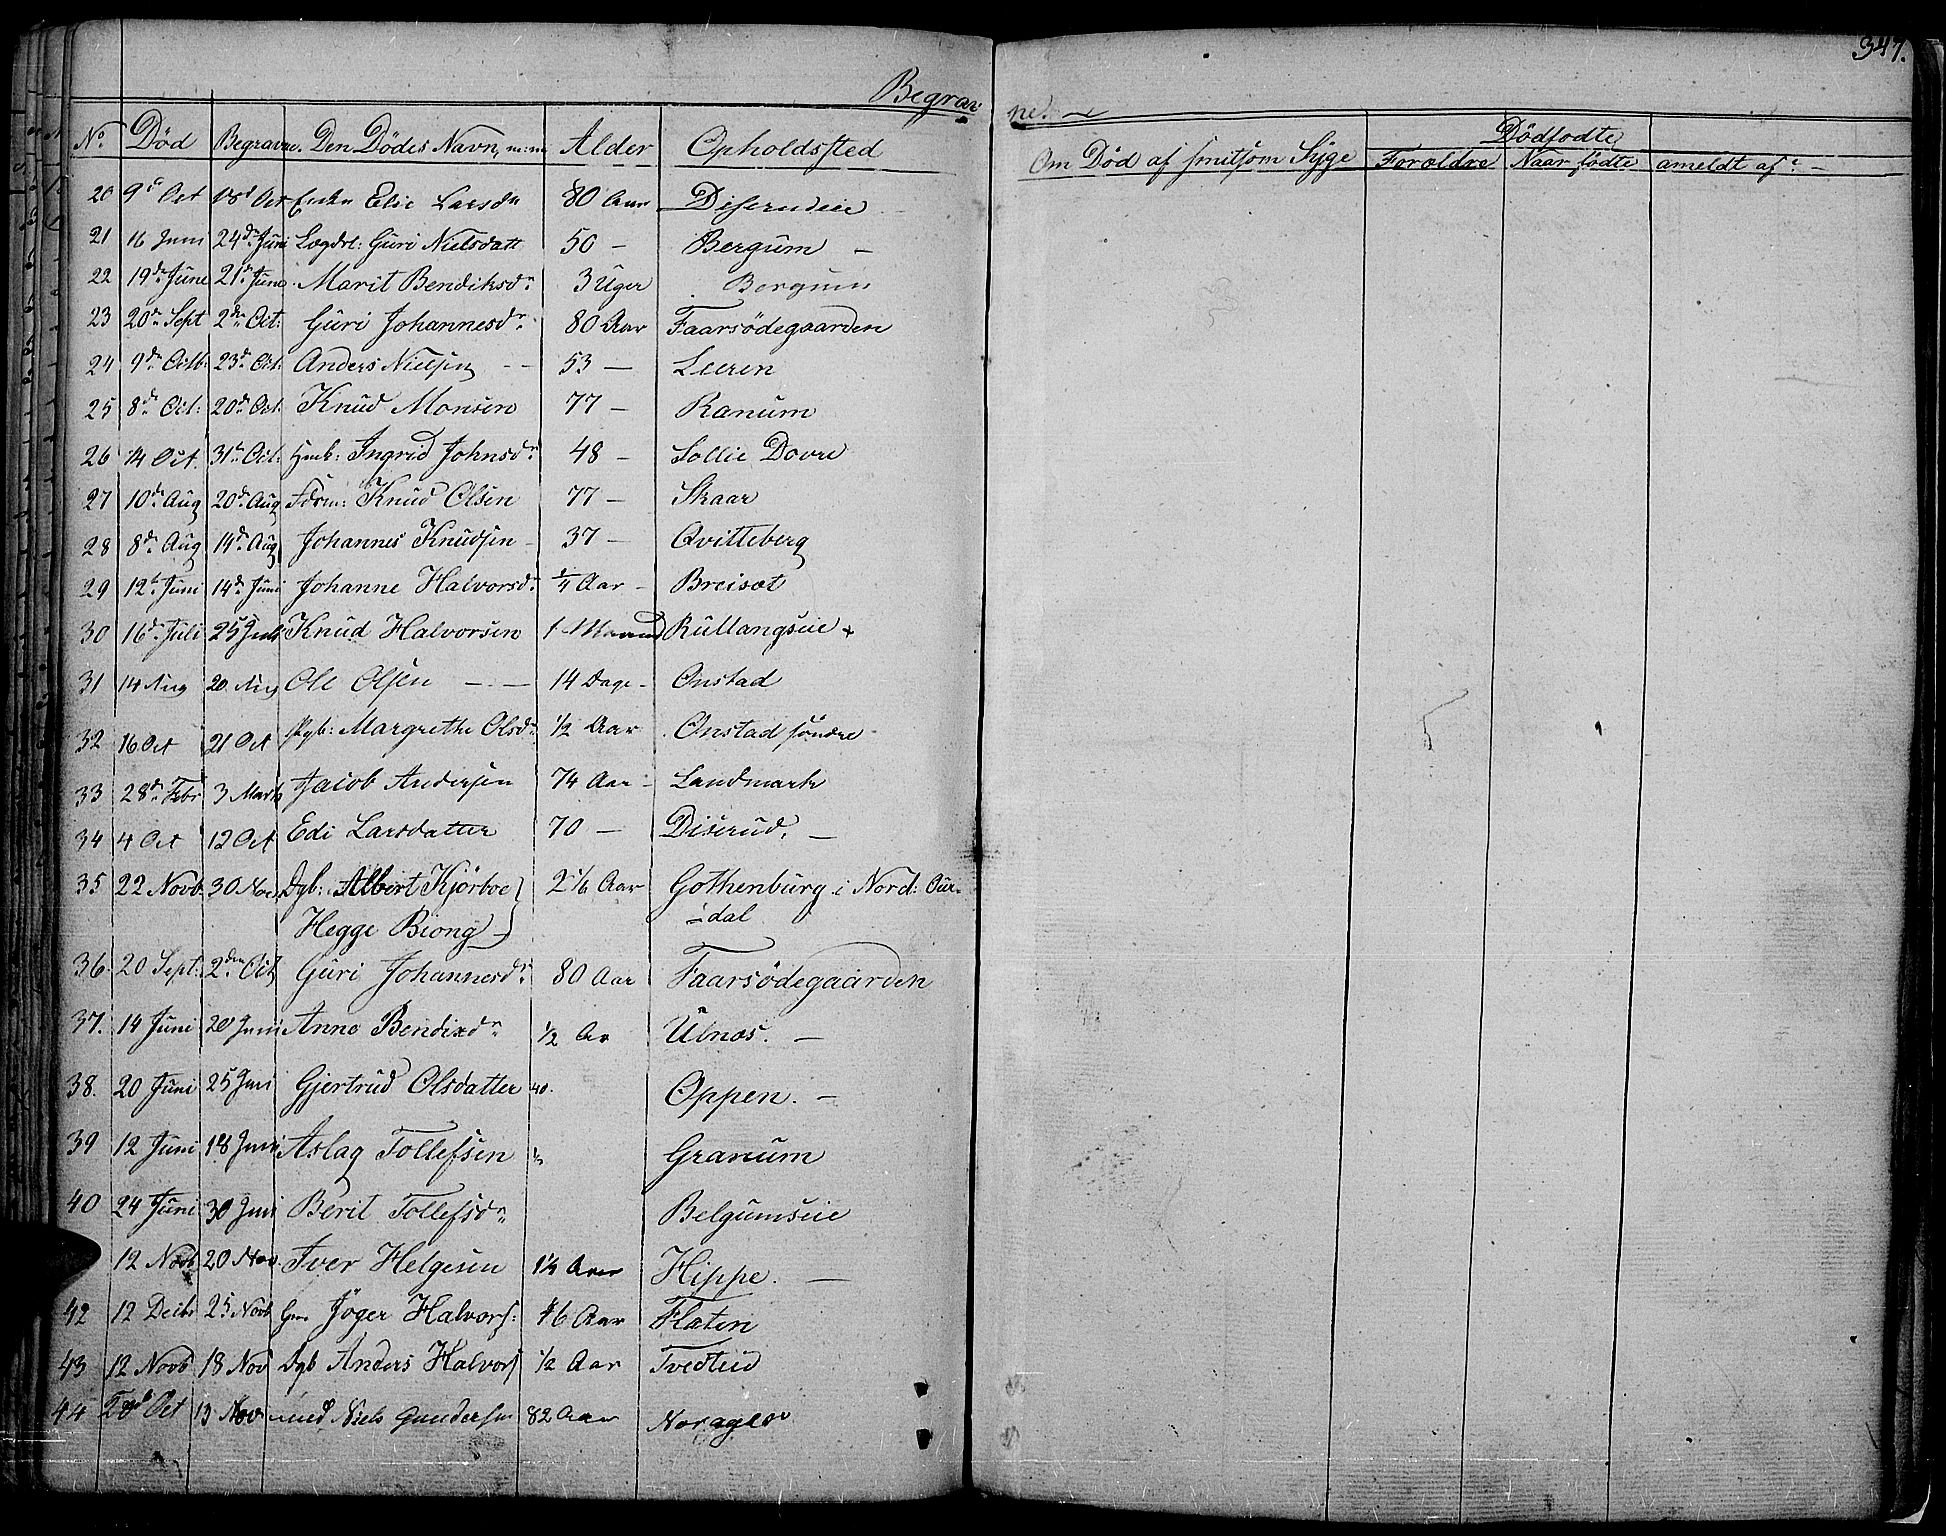 347.
Begravne.
No Död Begravne. Den Dödes Navn, m: m Alder Opholdssted Om Död af smitsom Syge Dödfödte
Forældre Naar födte ameldt af: -
20 9d Oct 18d Oct Enke Elie Larsdn 80 Aar Diserudeie
21 16 Juni 24de Juni Lægdsl: Guri Nielsdatt 50 - Bergum -
22 19de June 21de June Marit Bendiksdr 3 Uger Bergum
23 20de Sept 2den Oct: Guri Johannesdr 80 Aar Faarsödegaarden
24 9de Octb: 23de Oct: Anders Nielsen - - 53 - Leeren
25 8de Oct: 20de Oct: Knud Monsen 77 - Ranum
26 14 Oct. 31te Oct: Hmb: Ingrid Johnsdr 48 - Sollie Dovre
27 10de Aug 20de Aug Fdrm: Knud Olsen 77 - Skaar
28 8de Aug 14de Aug Johannes Knudsen - 37 - Qvitteberg
29 12te Juni 14de Juni Johanne Halvorsdr 1/4 Aar - Breisæt
30 16de Juli 25 Juli Knud Halvorsen 1 Maaned Rullangseie
31 14 Aug 20 Aug Ole Olsen - - 14 Dage - Onstad
32 16 Oct 21 Oct Pgb: Margrethe Olsdr 1/2 Aar Onstad söndre
33 28de Febr 3 Marts Jacob Andersen 74 Aar - Landmark
34 4 Oct 12 Oct Edi Larsdatter 70 - Diserud. -
35 22 Novb. 30 Nov. Dgb: Albert Kjörboe 2 1/6 Aar Gothenburg i Nord: Aur-
Hegge Biong dal
36. 20 Sept: 2den Oct Guri Johannesdr 80 Aar Faarsödegaarden
37. 14 Juni 20 Juni Anne Bendixdr 1/2 Aar Ulnæs. -
38. 20 Juni 25 Juni Gjertrud Olsdatter 40. Oppen. -
39 12 Juni 18 Juni Aslag Tollefsen Granum
40 24 Juni 30 Juni Berit Tollefsdr Belgumseie
12 Novb 20 Nov Iver Helgesen 1/4 Aar Hippe. -
42 12 Decbr 25 Novb Gm Jöger Halvors: 46 Aar Flaten
43 12 Novb 18 Nov Dgb Anders Halvors 1/2 Aar Tvedteid
44 20de Oct 13 Nov Niels Gundersen 82 Aar